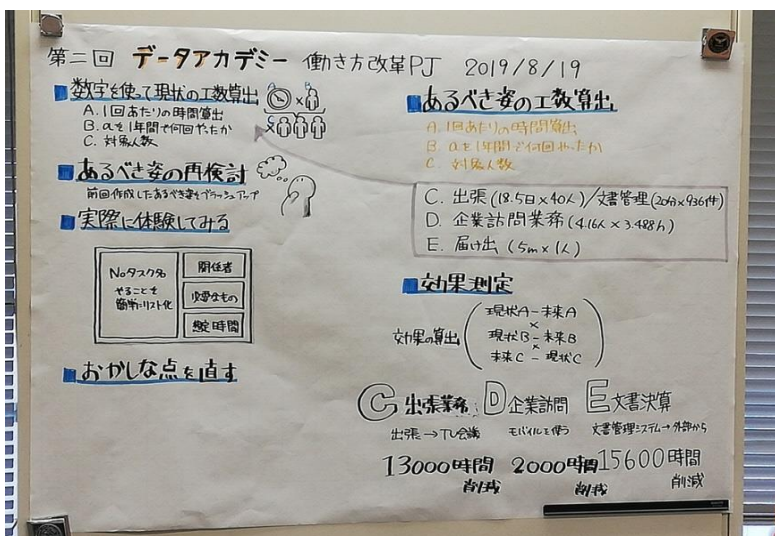 第二回 データアカデミー 働き方改革PJ 2019/8/19
数字を使って現状の工数算出
A. 1回あたりの時間算出
B. aを1年間で何回やったか
C. 対象人数
×
×
あるべき姿の再検討
前回作成したあるべき姿をブラッシュアップ
実際に体験してみる
Noタスク名
やることを
簡単にリスト化
関係者
必要なもの
想定時間
おかしな点を直す
あるべき姿の工数算出
A. 1回あたりの時間算出
B. aを1年間で何回やったか
C. 対象人数
C. 出張(18.5日×40人)/文書管理(20分×936件)
D. 企業訪問業務(4.16人×3.488h)
E. 届け出(5m×1人)
効果測定
効果の算出
現状A-未来A
×
現状B-未来B
×
未来C-現状C
C 出張業務
出張→TV会議
13000時間
削減
D 企業訪問
モバイルを使う
2000時間
削減
E 文書決算
文書管理システム→外部から
15600時間
削減